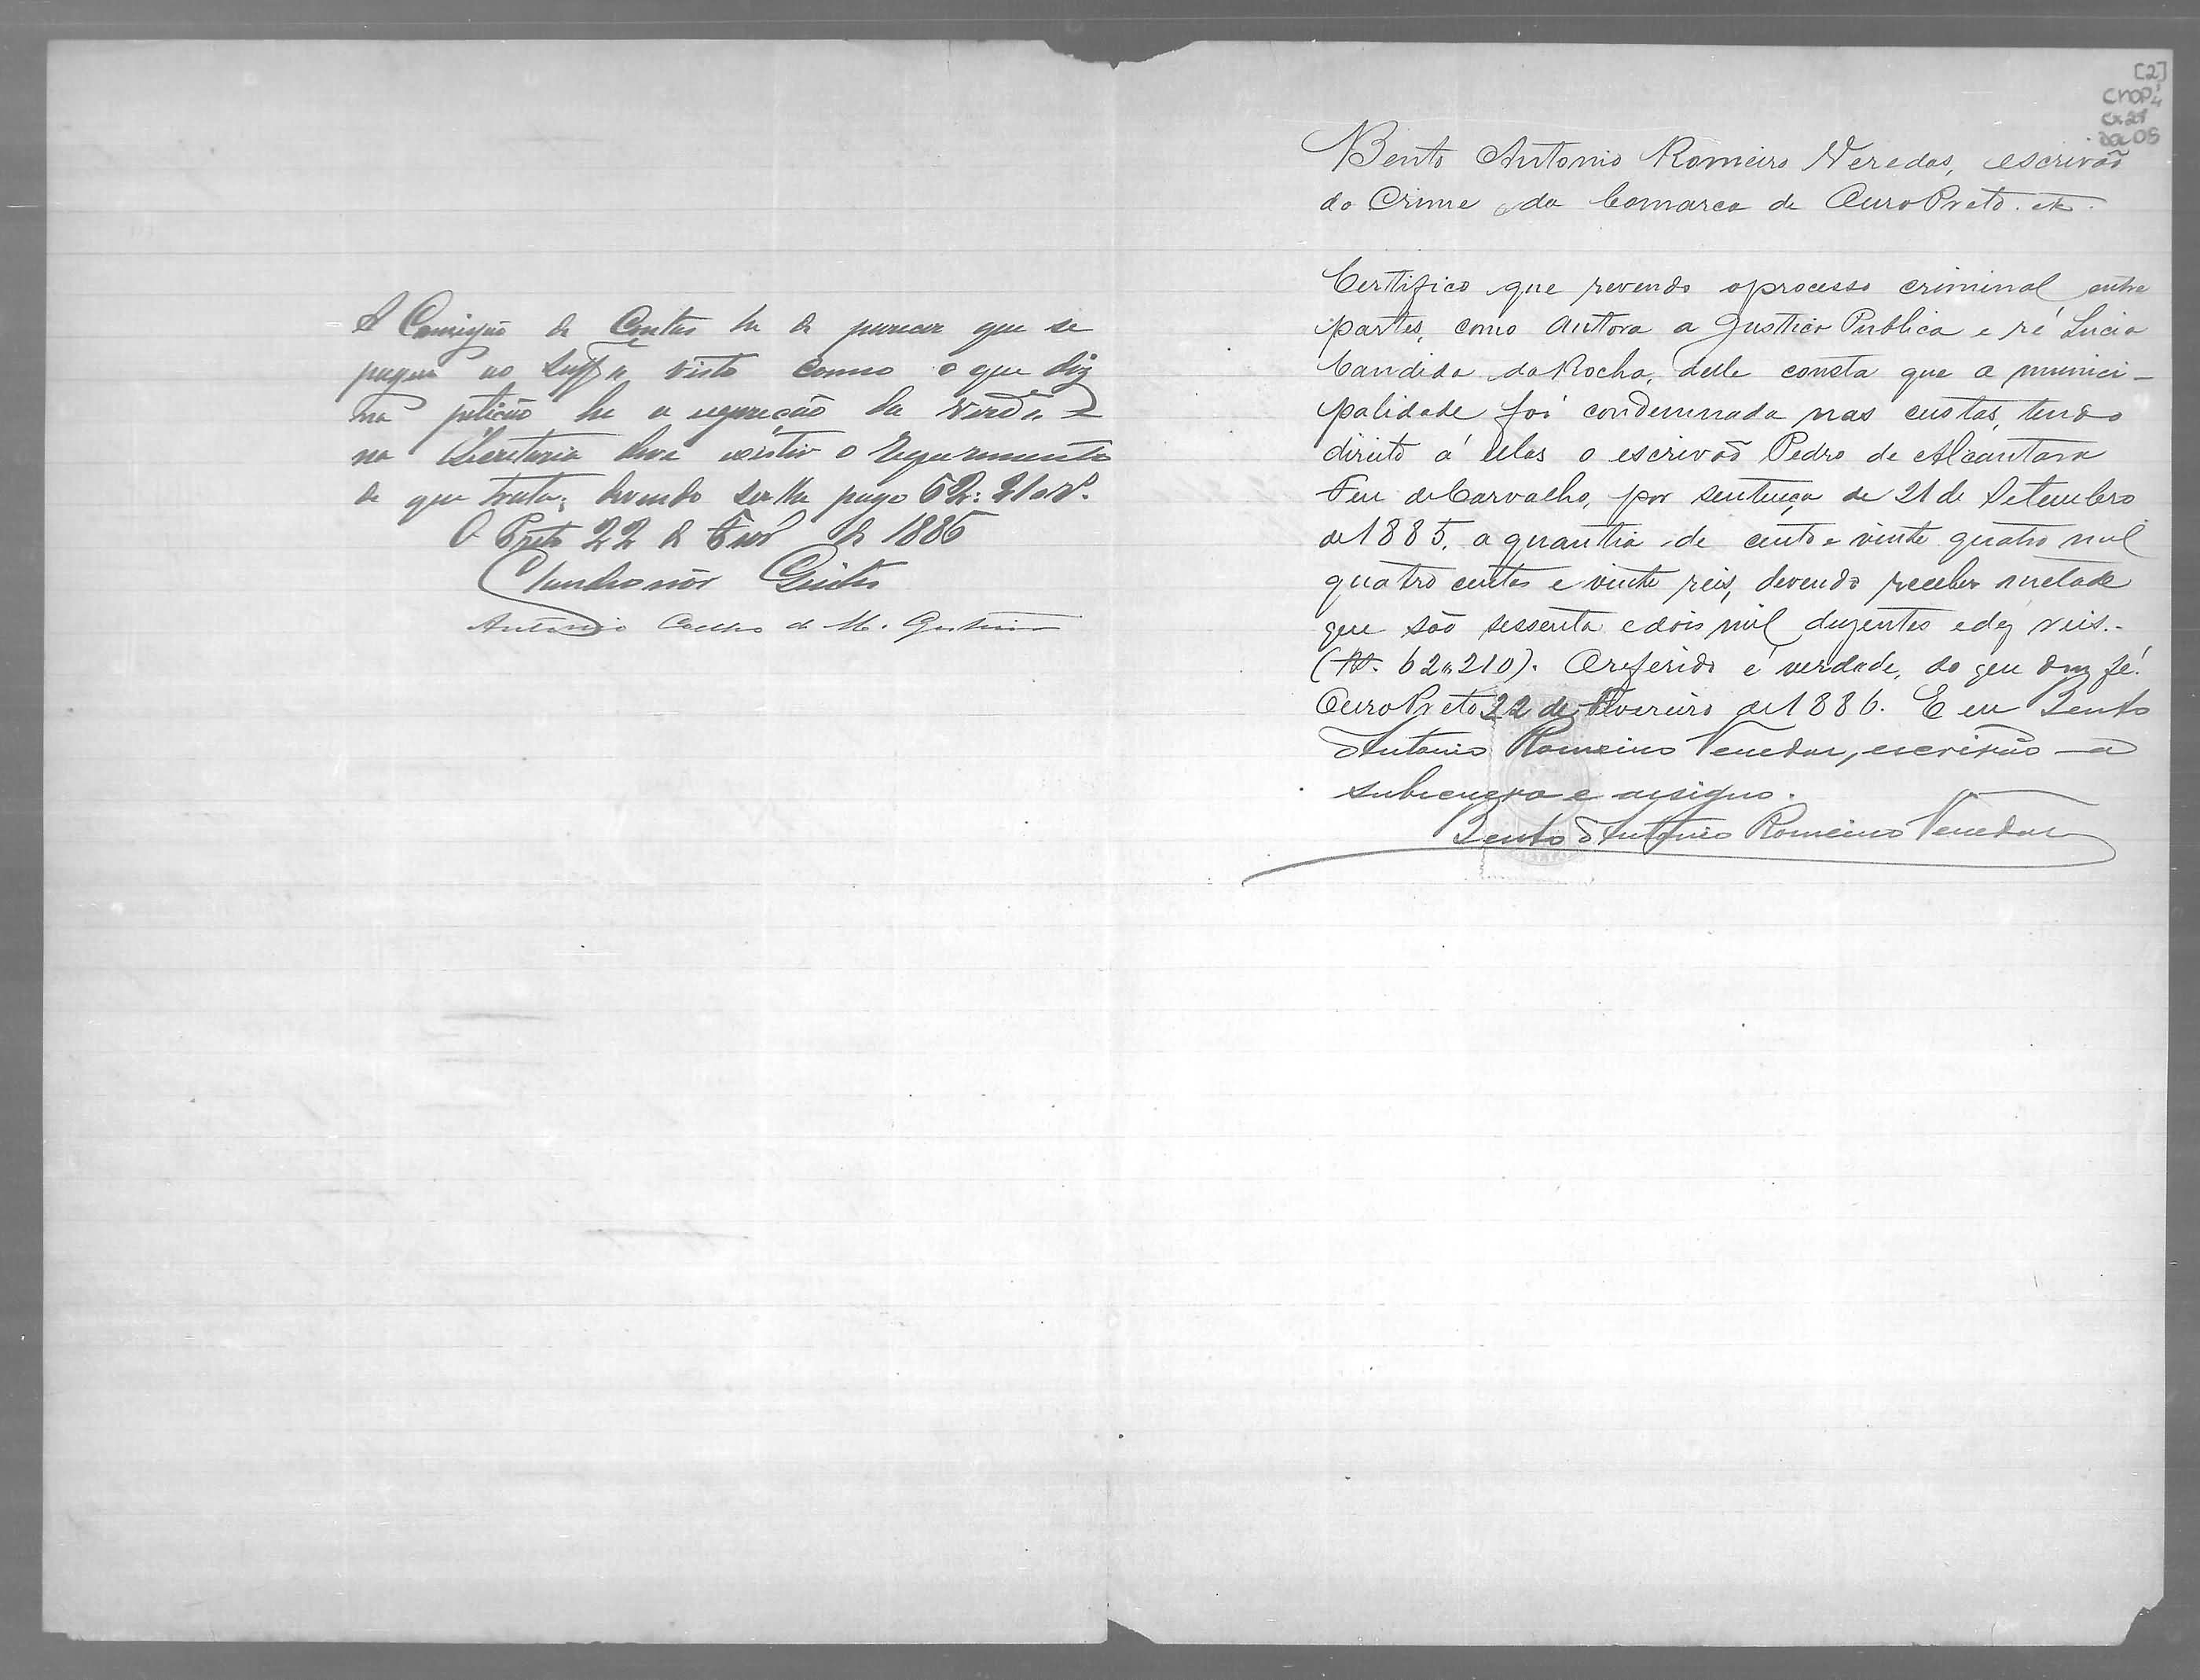 A Comissão de Contas he de parecer que se
pague ao Supp.e visto como o que diz
na petição he a expressão da verd.e e
na Secretaria deve existir o requerimento
de que trata; devendo ser lhe pago 62:210 r.s
O Preto 22 de Fevr.o de 1886
Antonio Coelho de M.
[2]
CMOP
cx 21
doc 05
Bento Antonio Romeiro Veredas, escrivão
do Crime da Comarca de Ouro Preto. etc.
Certifico que revendo o processo criminal entre
partes, como Autora a Justiça Publica e ré Lucia
Candida da Rocha, delle consta que a munici-
palidade foi condemnada nas custas, tendo
direito á ellas o escrivão Pedro de Alcantara
Feu de Carvalho, por sentença de 21 de Setembro
de 1885, a quantia de cento e vinte quatro mil
quatro centos e vinte reis, devendo receber metade
que são sessenta e dois mil duzentos e dez reis.-
(Rs. 62"210). O referido é verdade, do que dou fé.
Ouro Preto 22 de Fevereiro de 1886. E eu Bento
Antonio Romeiro Veredas, escrivão a
subscrevo e assigno.
Bento Antonio Romeiro Veredas